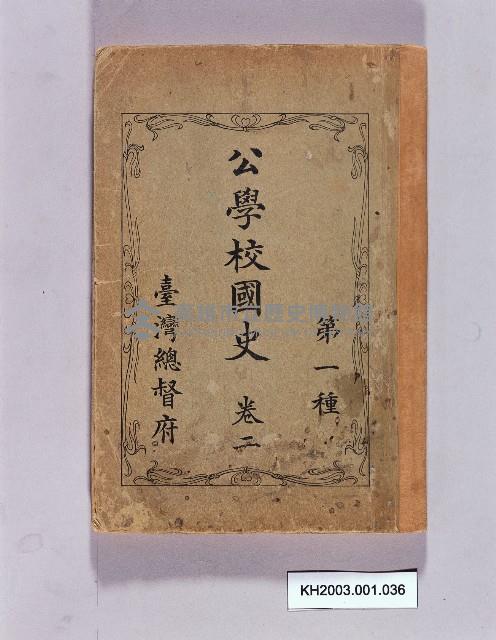 第一種
公學校國史 卷二
臺灣總督府
高雄市立歷史博物館
KH2003.001.036